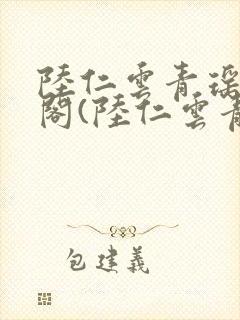 陸仁雲青瑶
閣(陸仁雲青
包建義